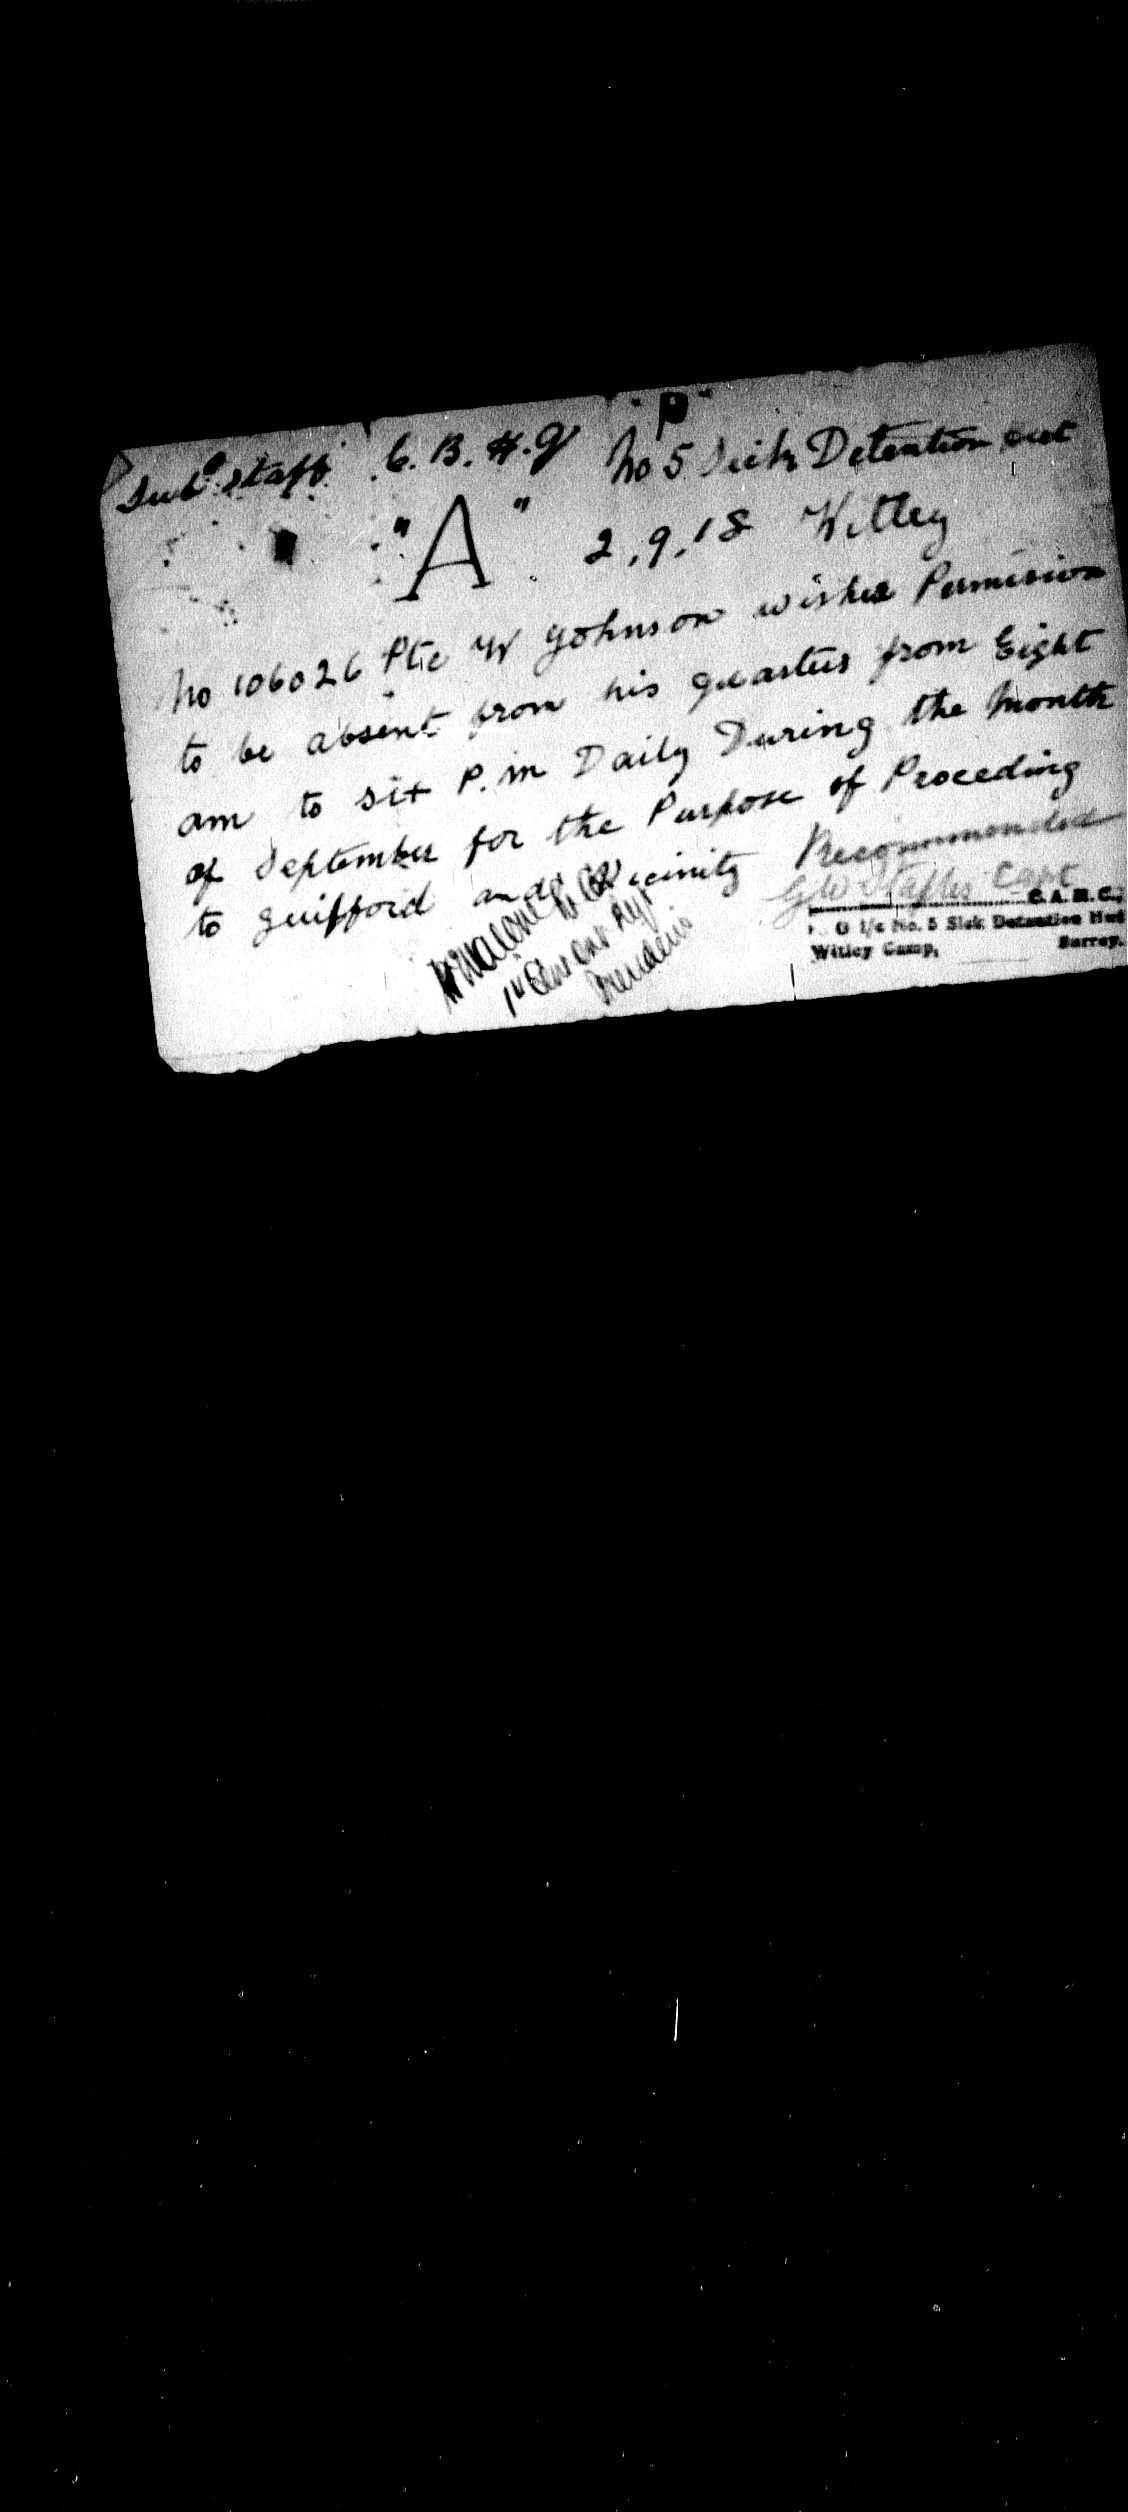 "P"
Sub. Staff C.B.H.Q No 5 Sick Detention Hut
"A" 2.9.18 Witley
No 106026 Pte W Johnson wishes Permision
to be absent from his quarters from Eight
am to six P.M Daily During the Month
of September for the Purpose of Proceding
to guifford and Vicinity Recommended
G W Staples Capt
C.A.M.C.,
O I/c No. 5 Sick Detention Hut
Witley Camp, Surrey.